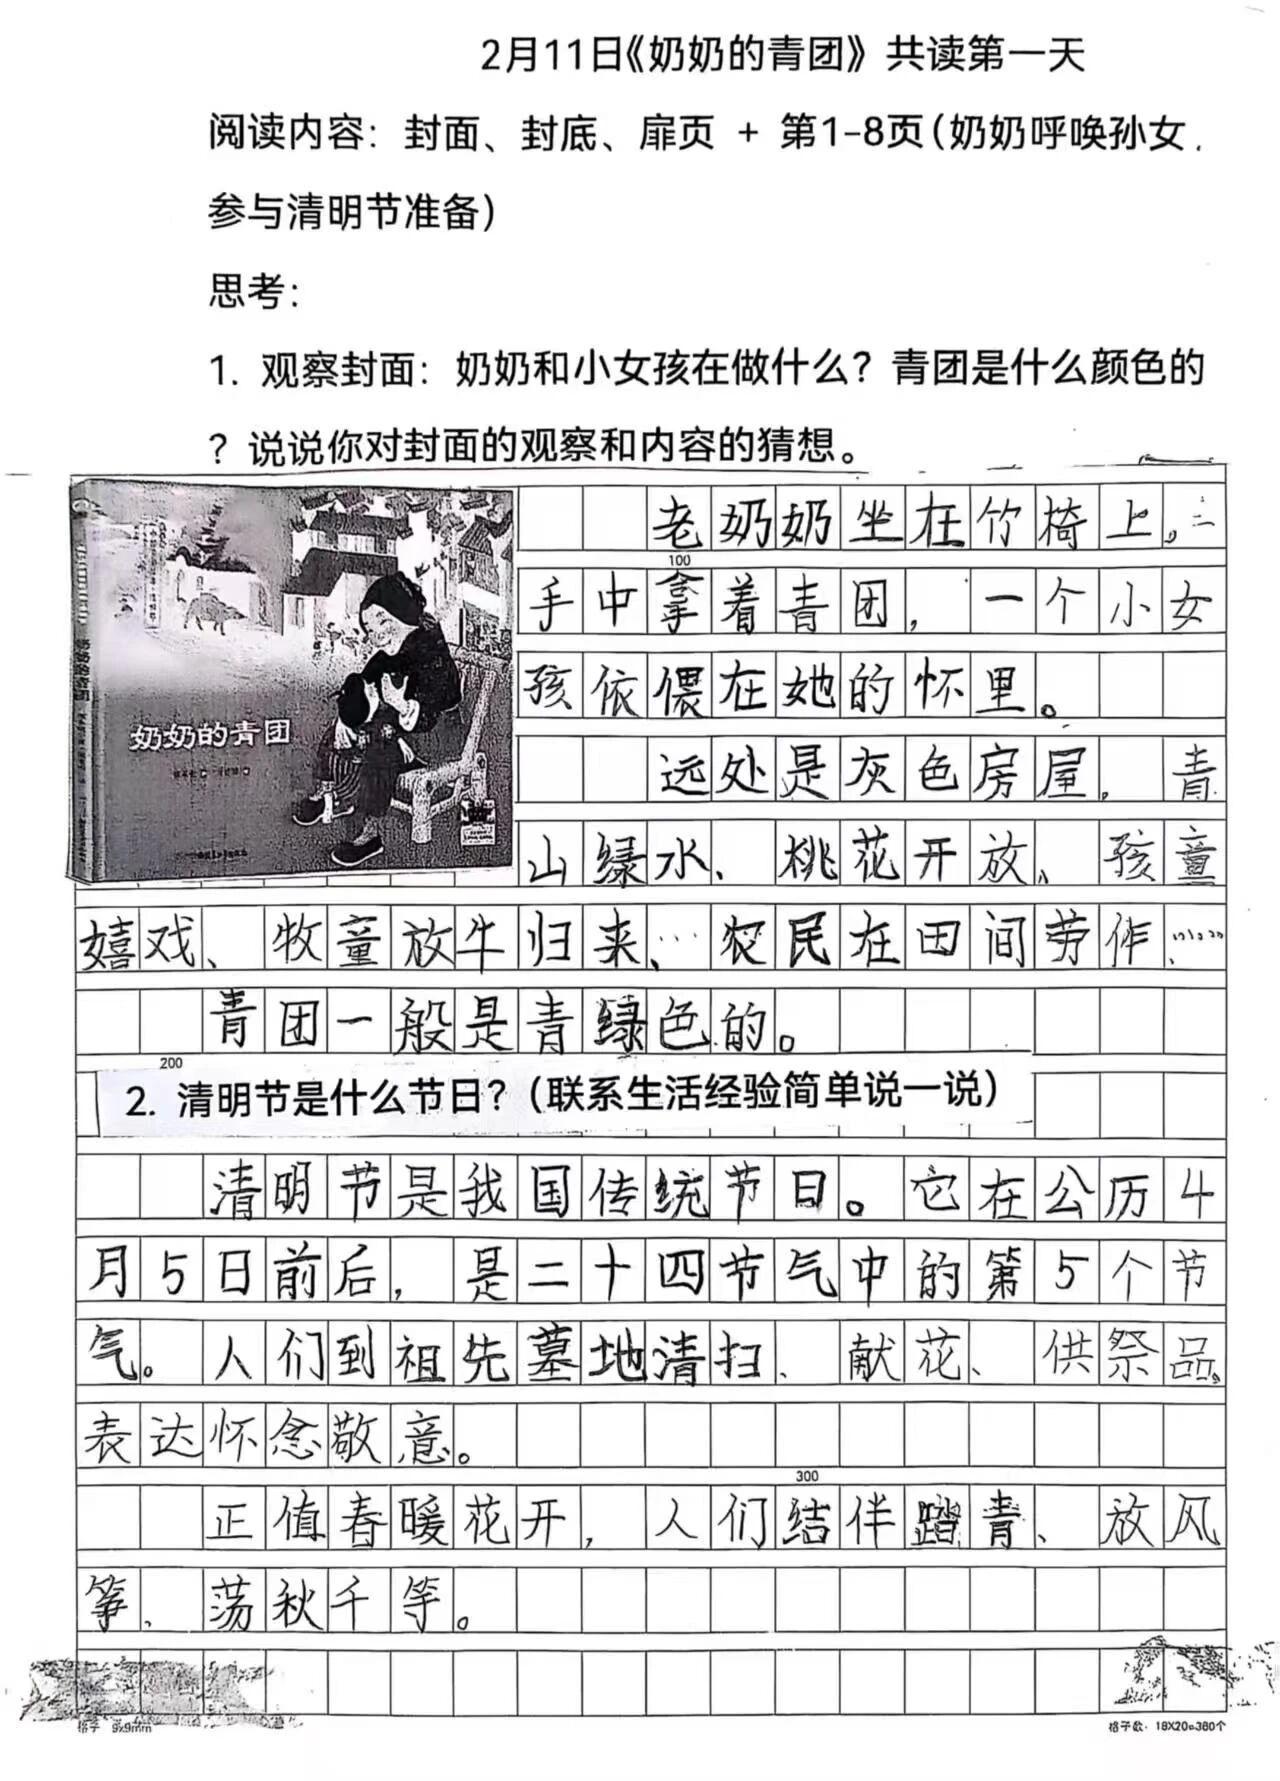 2月11日《奶奶的青团》共读第一天
阅读内容：封面、封底、扉页 + 第1-8页（奶奶呼唤孙女，
参与清明节准备）
思考：
1. 观察封面：奶奶和小女孩在做什么？青团是什么颜色的
？说说你对封面的观察和内容的猜想。
奶奶的青团
老奶奶坐在竹椅上，
100
手中拿着青团，一个小女
孩依偎在她的怀里。
远处是灰色房屋，青
山绿水、桃花开放、孩童
嬉戏、牧童放牛归来、…农民在田间劳作……
青团一般是青绿色的。
200
2. 清明节是什么节日？（联系生活经验简单说一说）
清明节是我国传统节日。它在公历4
月5日前后，是二十四节气中的第5个节
气。人们到祖先墓地清扫、献花、供祭品，
表达怀念敬意。
300
正值春暖花开，人们结伴踏青、放风
筝、荡秋千等。
格子 9x9mm
格子数：18X20=360个